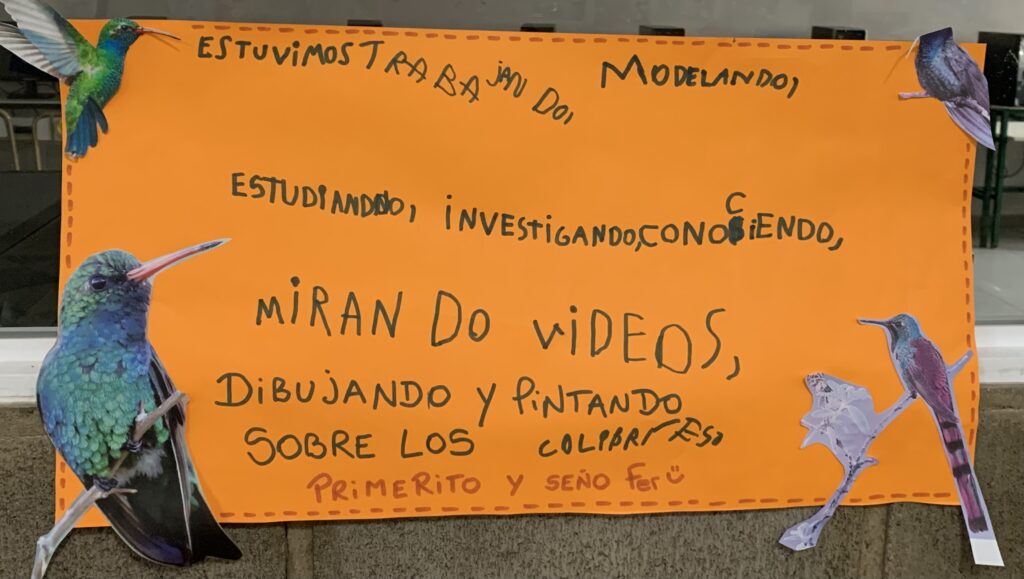 ESTUVIMOS TRABAjANDO, MODELANDO,
ESTUDIANDO, iNVESTiGANDO, CONOCiENDO,
MiRANDO ViDEOS,
DiBUjANDO Y PiNTANDO
SOBRE LOS COLIBRÍES.
PRiMERiTO Y SEÑO Fer